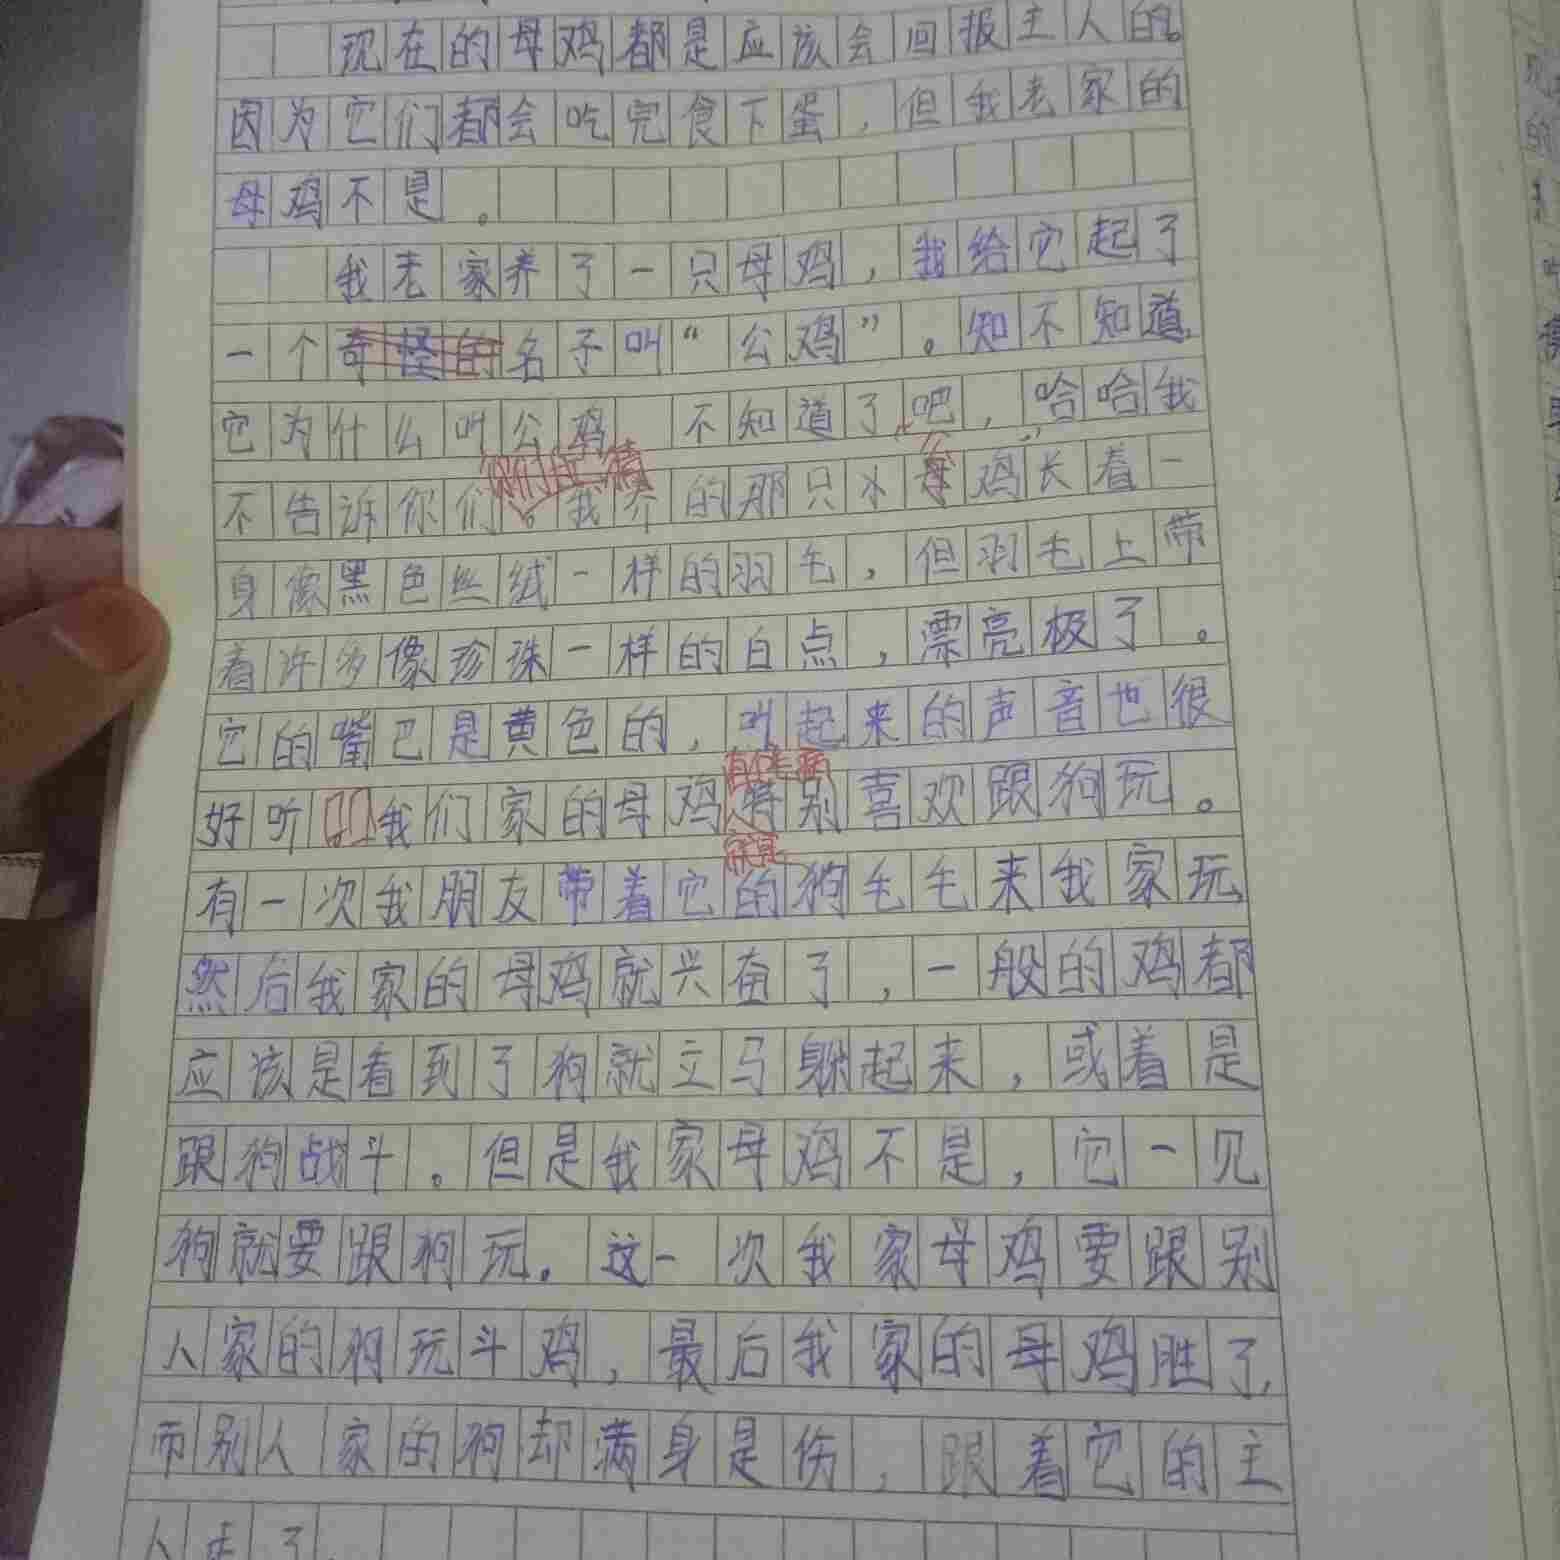 现在的母鸡都是应该会回报主人的。
因为它们都会吃完食下蛋，但我老家的
母鸡不是。
我老家养了一只母鸡，我给它起了
一个奇怪的名子叫“公鸡”。知不知道，
它为什么叫公鸡 不知道了吧，哈哈我
不告诉你们。我养的那只小母鸡长着一
身像黑色丝绒一样的羽毛，但羽毛上带
着许多像珍珠一样的白点，漂亮极了。
它的嘴巴是黄色的，叫起来的声音也很
好听 我们家的母鸡特别喜欢跟狗玩。
有一次我朋友带着它的狗毛毛来我家玩
然后我家的母鸡就兴奋了，一般的鸡都
应该是看到了狗就立马躲起来，或着是
跟狗战斗。但是我家母鸡不是，它一见
狗就要跟狗玩。这一次我家母鸡要跟别
人家的狗玩斗鸡，最后我家的母鸡胜了，
而别人家的狗却满身是伤，跟着它的主
人走了